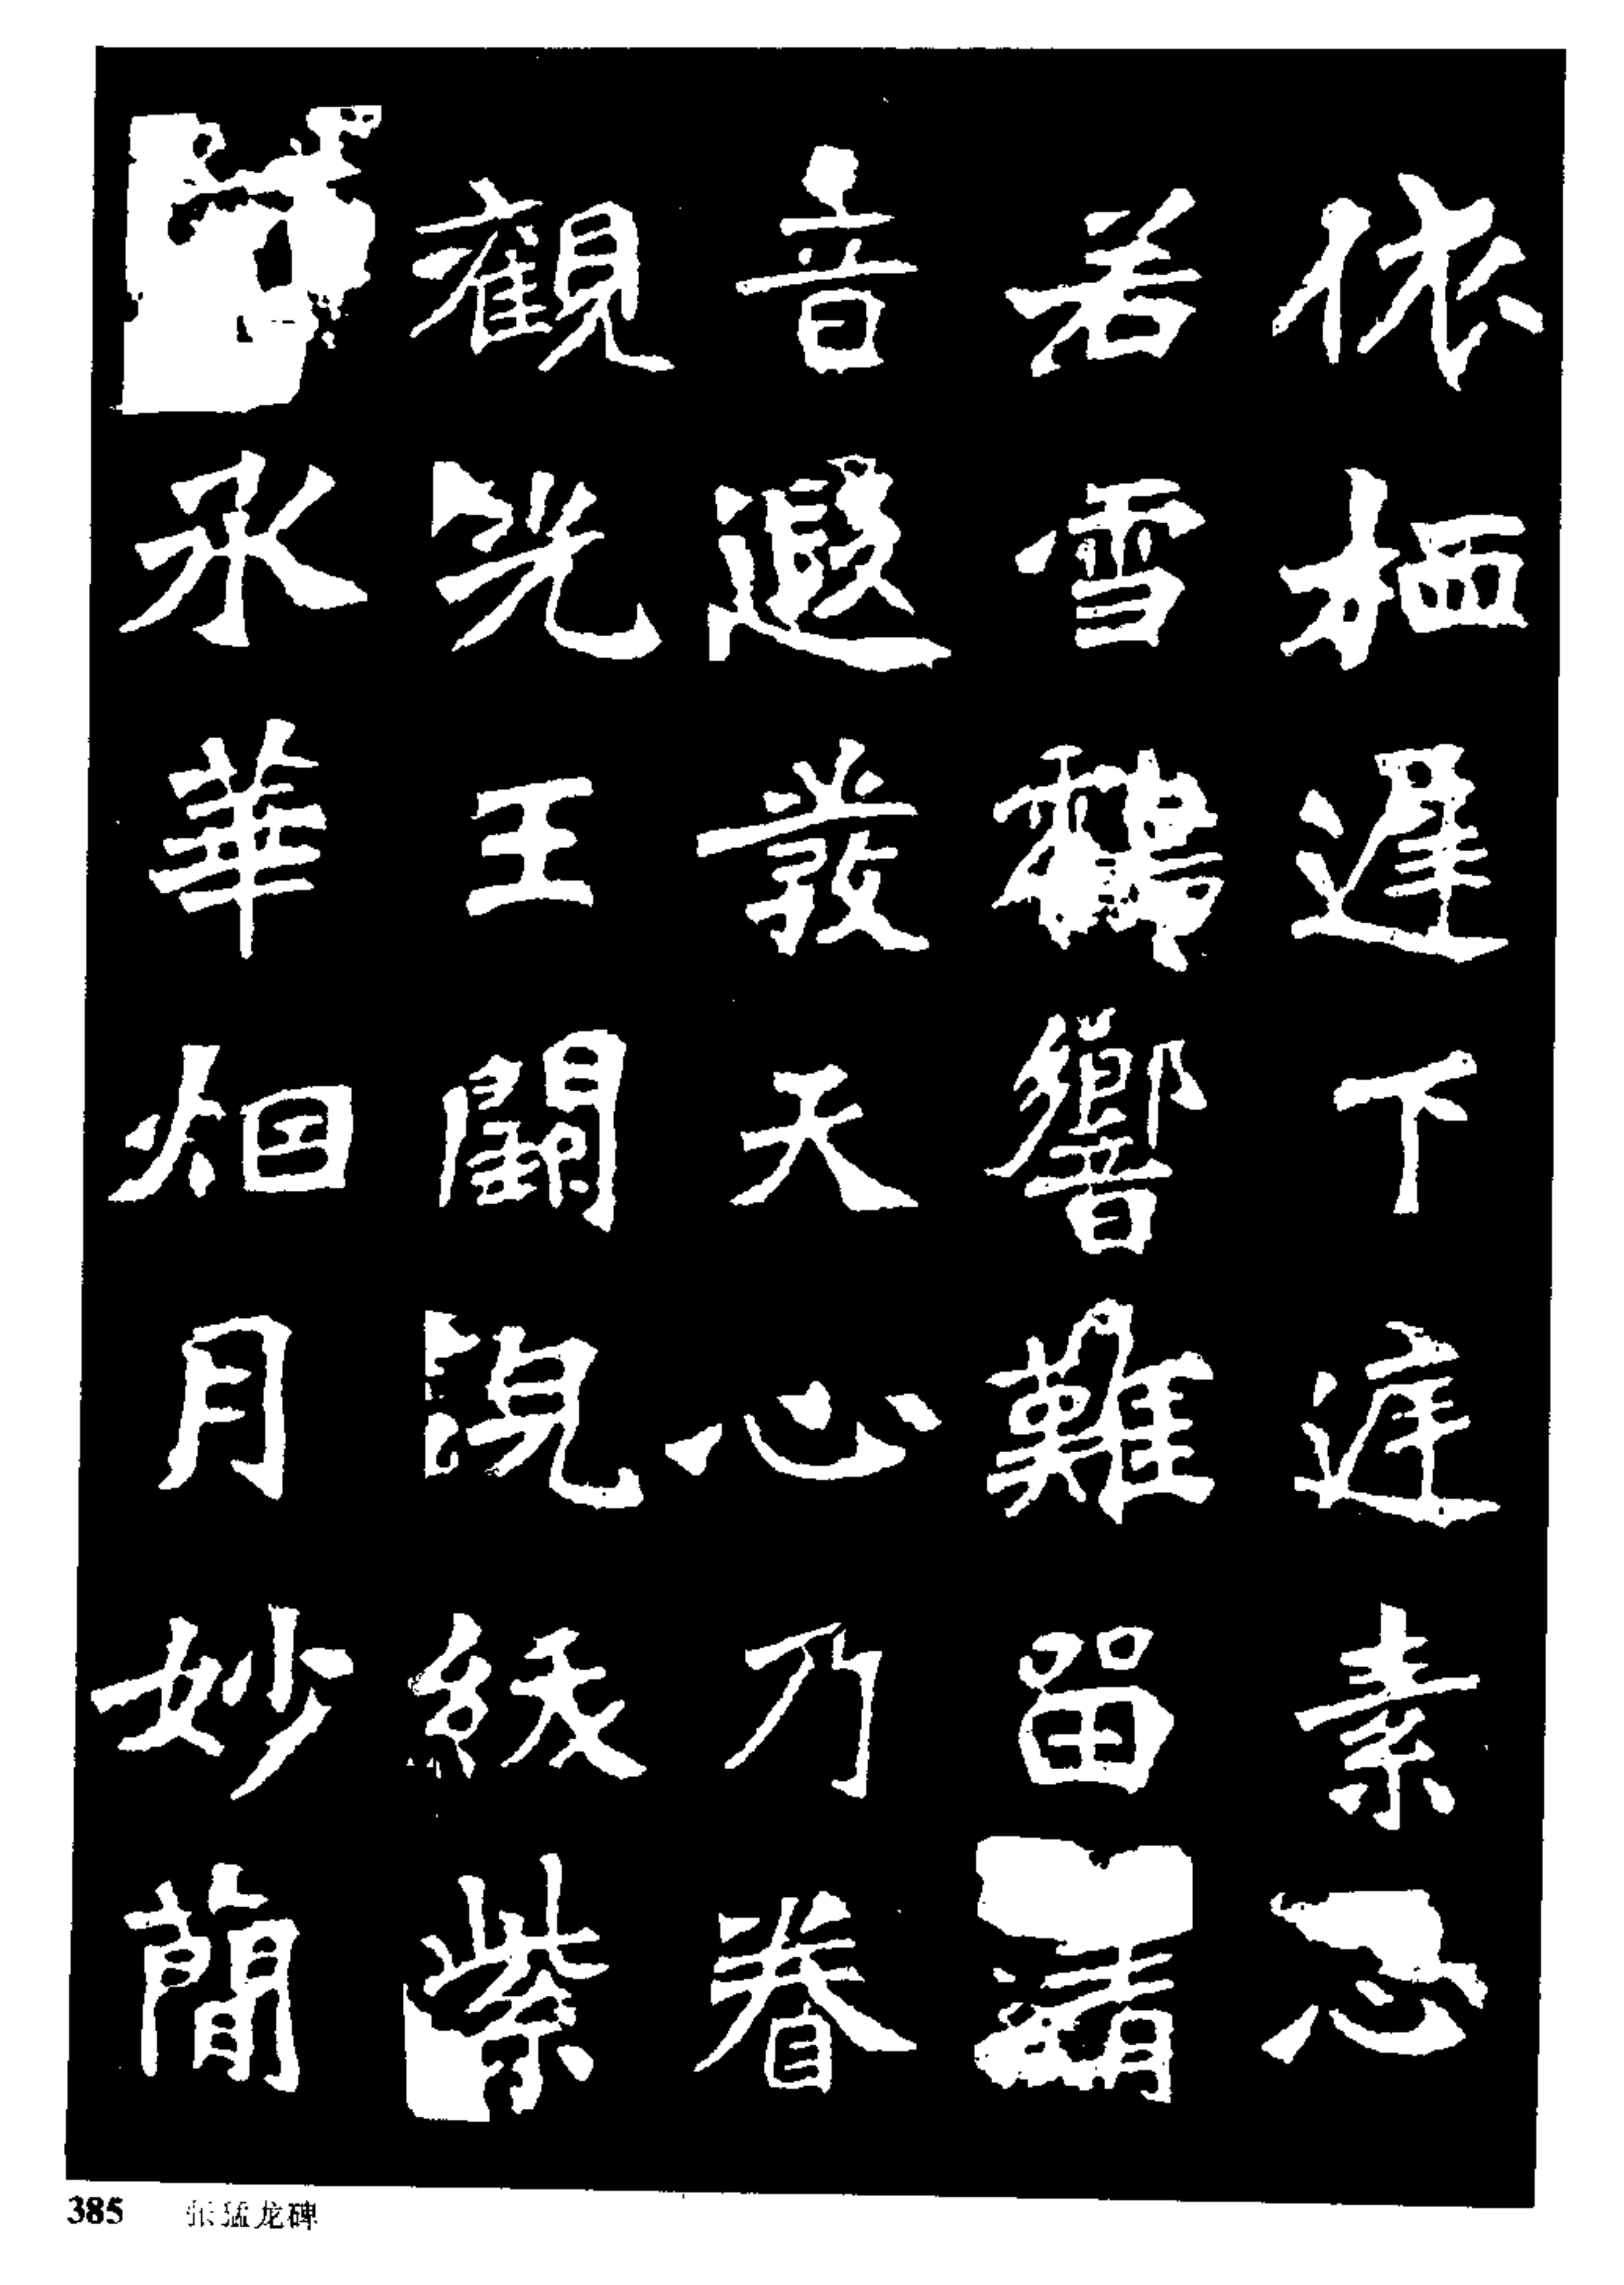 依栖遲下廷素心
若雪鶴響難留清
音遐發天心乃眷
觀光王闕浣紱紫
蘭承華烟月妙簡
385 张猛龙碑